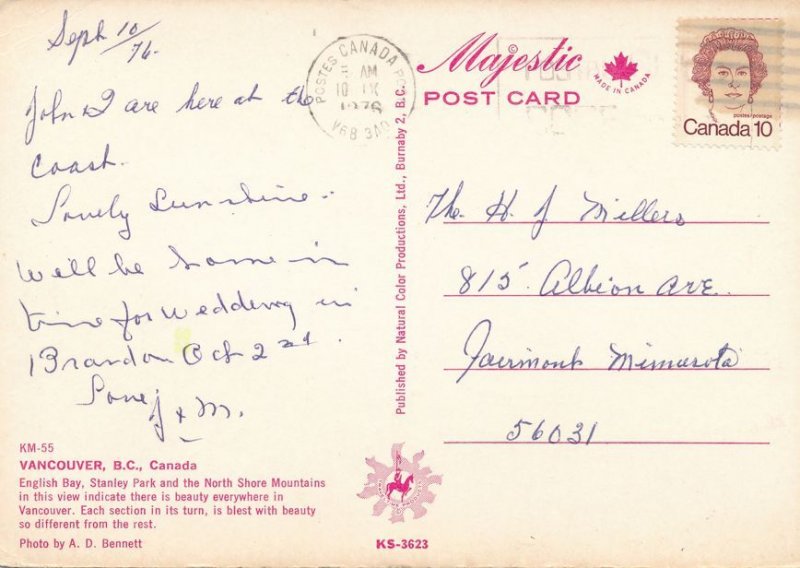 Sept 10/76.
John & I are here at the
Coast.
Lovely Sunshine.
Will be home in
time for Wedding in
Brandon Oct 2nd.
Love
J & M.
KM-55
VANCOUVER, B.C., Canada
English Bay, Stanley Park and the North Shore Mountains
in this view indicate there is beauty everywhere in
Vancouver. Each section in its turn, is blest with beauty
so different from the rest.
Photo by A. D. Bennett
POSTES CANADA POST
AM
10 IX
1976
V6B 3A0
Published by Natural Color Productions, Ltd., Burnaby 2, B.C.
KS-3623
Majestic
POST CARD
MADE IN CANADA
postes/postage
Canada 10
The H J Millers
815 Albion Ave.
Fairmont Minnusota
56031